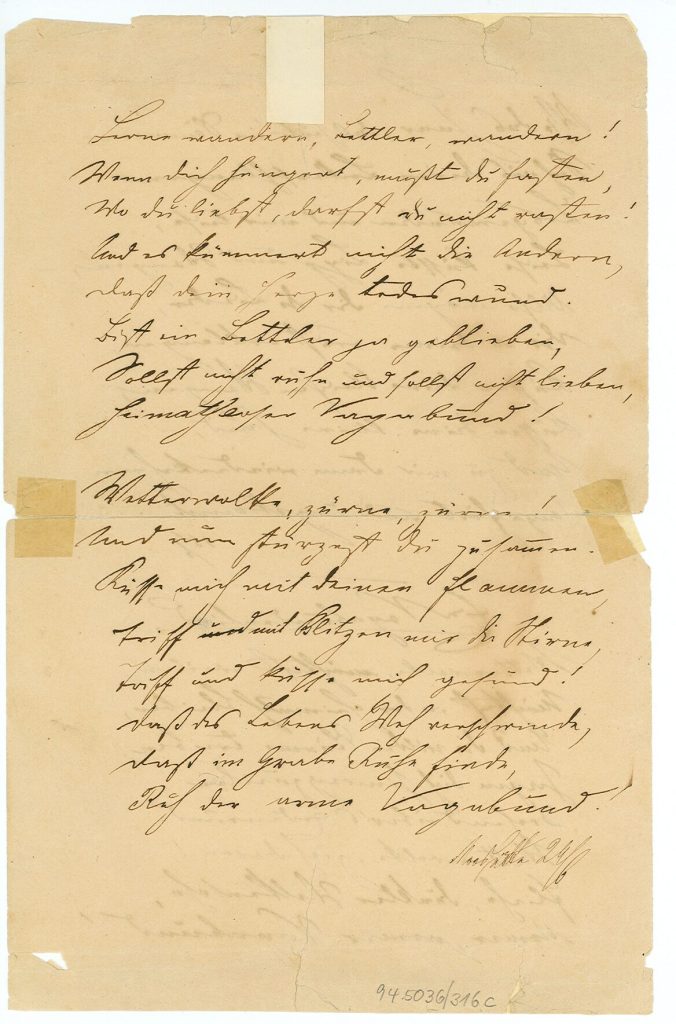 Lerne wandern, Bettler, wandern!
Wenn dich hungert, mußt du fasten,
Wo du liebst, darfst du nicht rasten!
Und es kümmert nicht die Andern,
Daß dein Herze todeswund.
Bist ein Bettler ja geblieben,
Sollst nicht ruhn und sollst nicht lieben,
Heimathloser Vagabund!
Wetterwolke, zürne, zürne!
Und nun stürzest du zusammen.
Küsse mich mit deinen Flammen,
Triff und mit Blitzen mir die Stirne,
Triff und küsse mich gesund!
Daß des Lebens Weh verschwinde,
Daß im Grabe Ruhe finde,
Ruh der arme Vagabund!
29/6
945036/316c